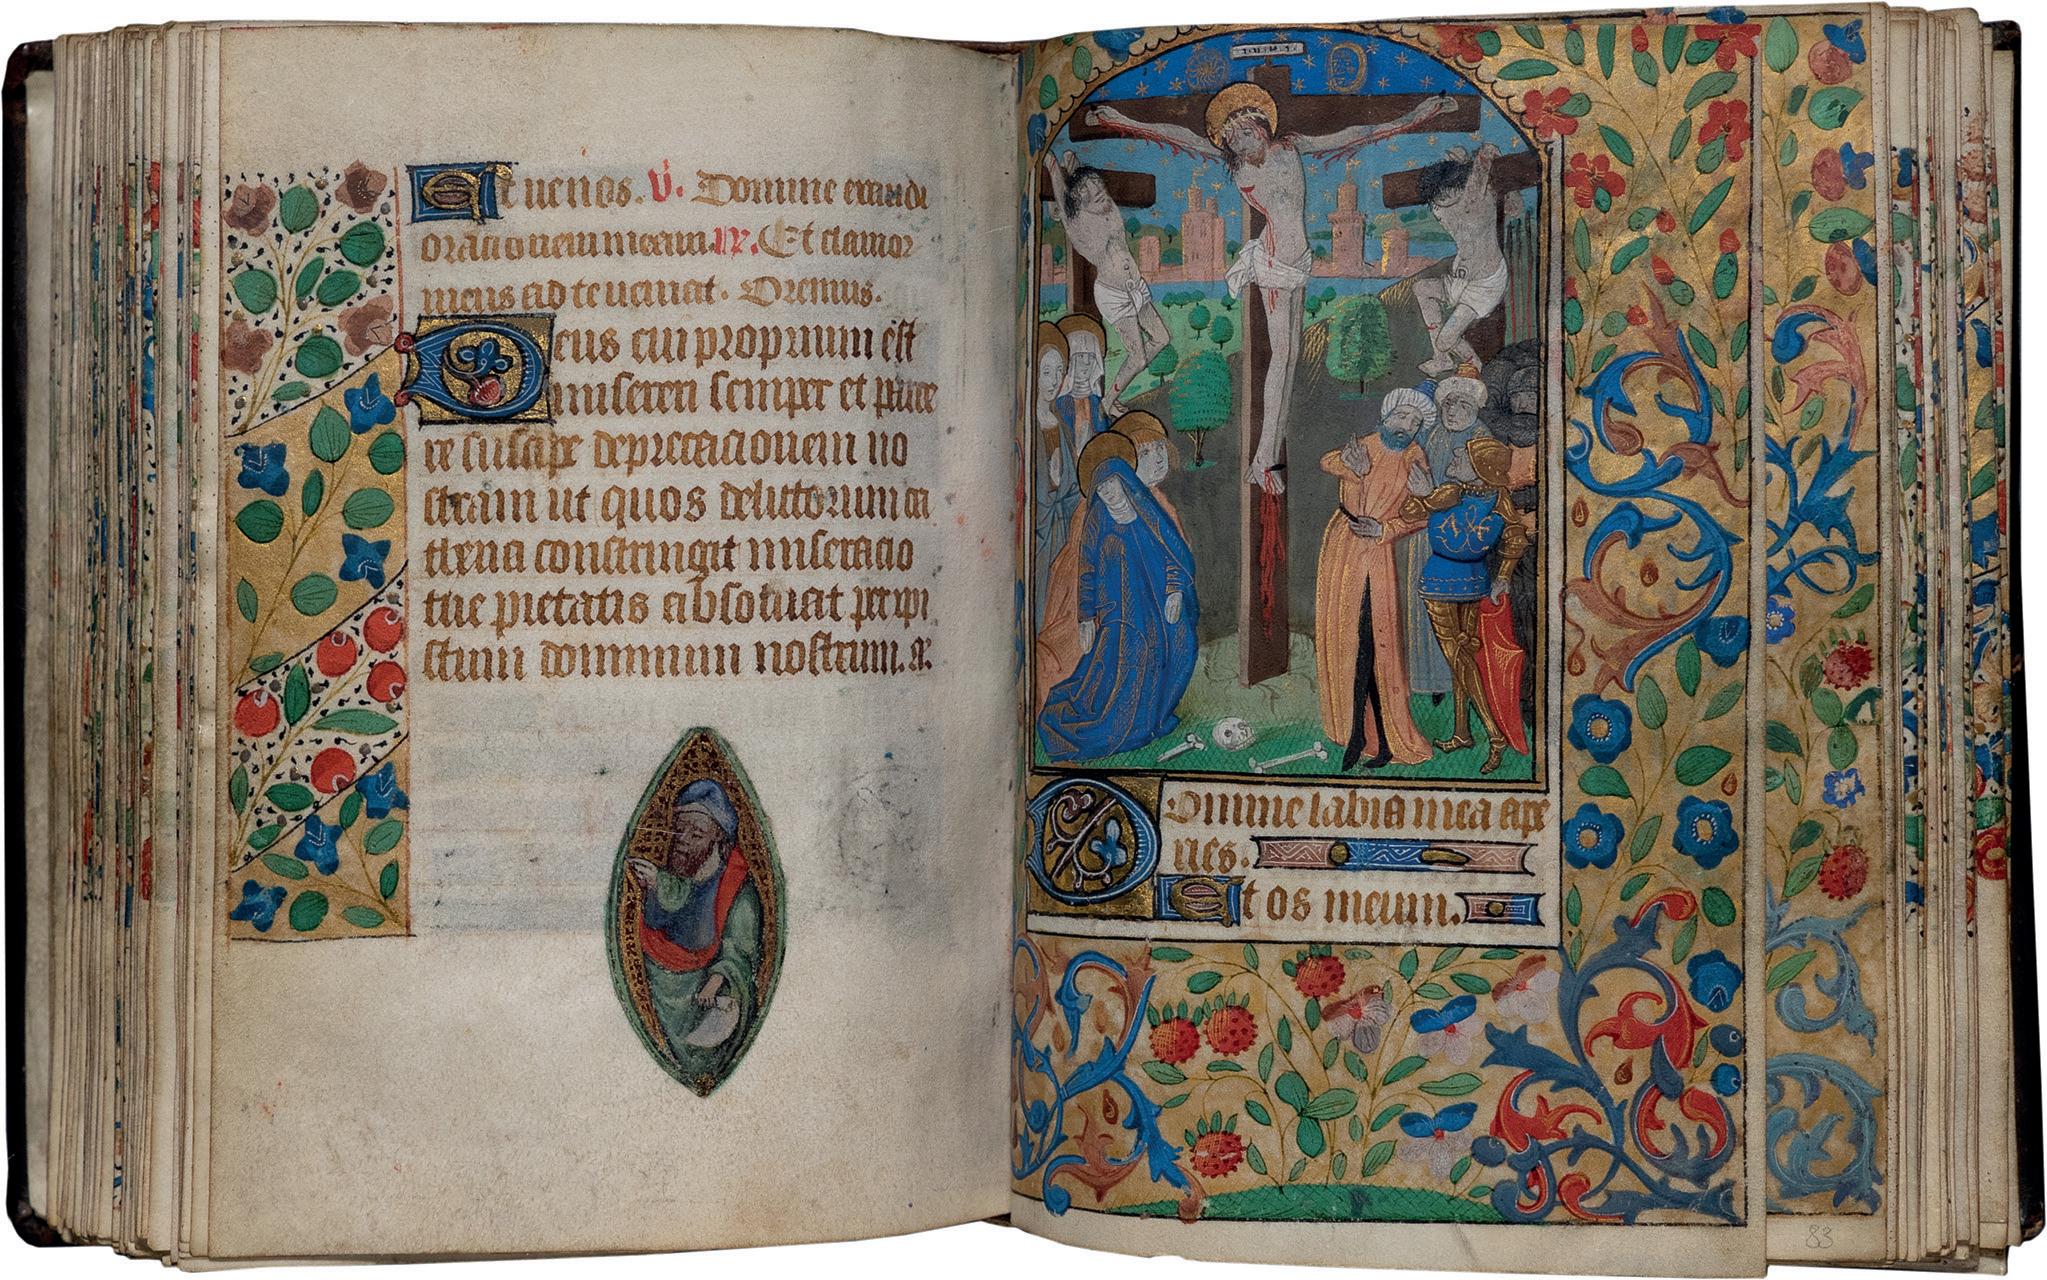 Et uenos. V. Domine exaudi
oracionem meam. R. Et clamor
meus ad te ueniat. Oremus.
Deus cui proprium est
misereri semper et parce
re suscipe deprecacionem no
stram ut quos delictorum ca
thena constringit miseracio
tue pietatis absoluat per xpi
stum dominum nostrum. a.
Domine labia mea ape
ries.
Et os meum.
83